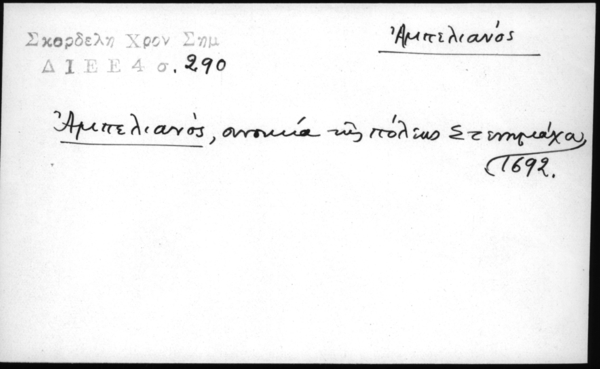 Σκορδελη Χρον Σημ
Δ Ι Ε Ε 4 σ. 290
Ἀμπελιανός
Ἀμπελιανός, συνοικία τῆς πόλεως Στενημάχου,
1692.